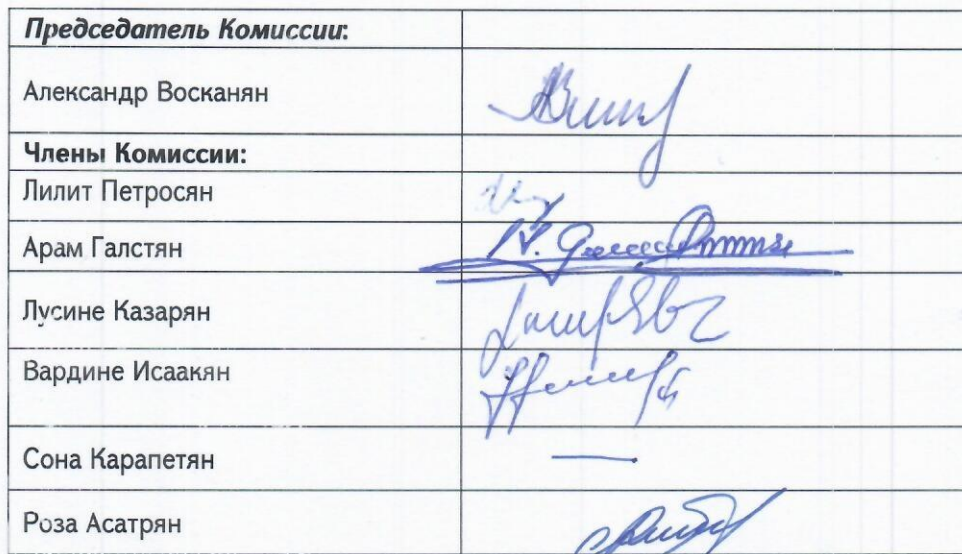 Председатель Комиссии:
Александр Восканян
Члены Комиссии:
Лилит Петросян
Арам Галстян
Лусине Казарян
Вардине Исаакян
Сона Карапетян
Роза Асатрян